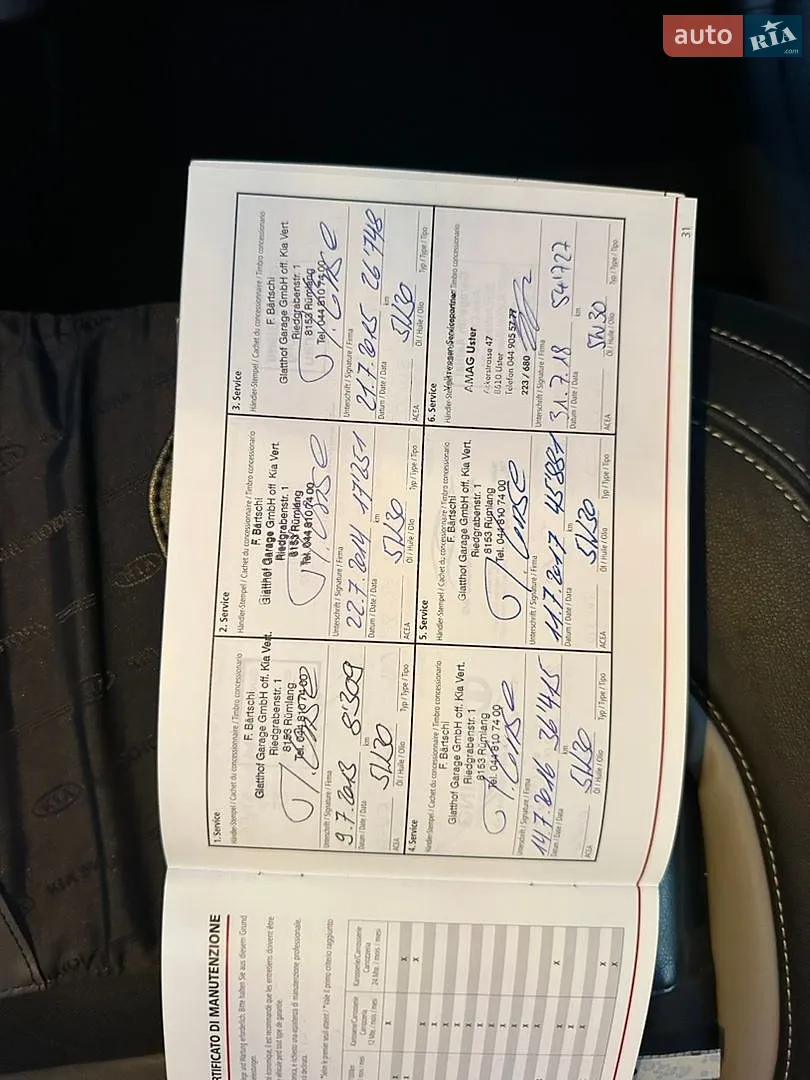 auto RIA.com
31
1. Service
Händler-Stempel / Cachet du concessionnaire / Timbro concessionario
F. Bärtschi
Glatthof Garage GmbH off. Kia Vert.
Riedgrabenstr. 1
8153 Rümlang
Tel. 044 810 74 00
Unterschrift / Signature / Firma
9.7.2013 8'309
Datum / Date / Data km
5W30
ACEA Öl / Huile / Olio Typ / Type / Tipo
2. Service
Händler-Stempel / Cachet du concessionnaire / Timbro concessionario
F. Bärtschi
Glatthof Garage GmbH off. Kia Vert.
Riedgrabenstr. 1
8153 Rümlang
Tel. 044 810 74 00
Unterschrift / Signature / Firma
22.7.2014 17'251
Datum / Date / Data km
5W30
ACEA Öl / Huile / Olio Typ / Type / Tipo
3. Service
Händler-Stempel / Cachet du concessionnaire / Timbro concessionario
F. Bärtschi
Glatthof Garage GmbH off. Kia Vert.
Riedgrabenstr. 1
8153 Rümlang
Tel. 044 810 74 00
Unterschrift / Signature / Firma
21.7.2015 26'748
Datum / Date / Data km
5W30
ACEA Öl / Huile / Olio Typ / Type / Tipo
4. Service
Händler-Stempel / Cachet du concessionnaire / Timbro concessionario
F. Bärtschi
Glatthof Garage GmbH off. Kia Vert.
Riedgrabenstr. 1
8153 Rümlang
Tel. 044 810 74 00
Unterschrift / Signature / Firma
14.7.2016 36'415
Datum / Date / Data km
5W30
ACEA Öl / Huile / Olio Typ / Type / Tipo
5. Service
Händler-Stempel / Cachet du concessionnaire / Timbro concessionario
F. Bärtschi
Glatthof Garage GmbH off. Kia Vert.
Riedgrabenstr. 1
8153 Rümlang
Tel. 044 810 74 00
Unterschrift / Signature / Firma
11.7.2017
Datum / Date / Data km
5W30
ACEA Öl / Huile / Olio Typ / Type / Tipo
6. Service
Händler-Stempel Timbro concessionario
AMAG Uster
Ackerstrasse 47
8610 Uster
Telefon 044 905
223 / 680
Unterschrift / Signature / Firma
31.7.18 54'727
Datum / Date / Data km
5W30
ACEA Öl / Huile / Olio Typ / Type / Tipo
RTIFICATO DI MANUTENZIONE
ege und Wartung erforderlich. Bitte halten Sie aus diesem Grund
économique, il est recommandé que les entretiens doivent être
véhicule peut tout type de garantie.
è richiesto una esistenza di manutenzione professionale.
Karosserie/Carrosserie
Carrozzeria
12 Mte. / mois / mesi
Karosserie/Carrosserie
Carrozzeria
24 Mte. / mois / mesi